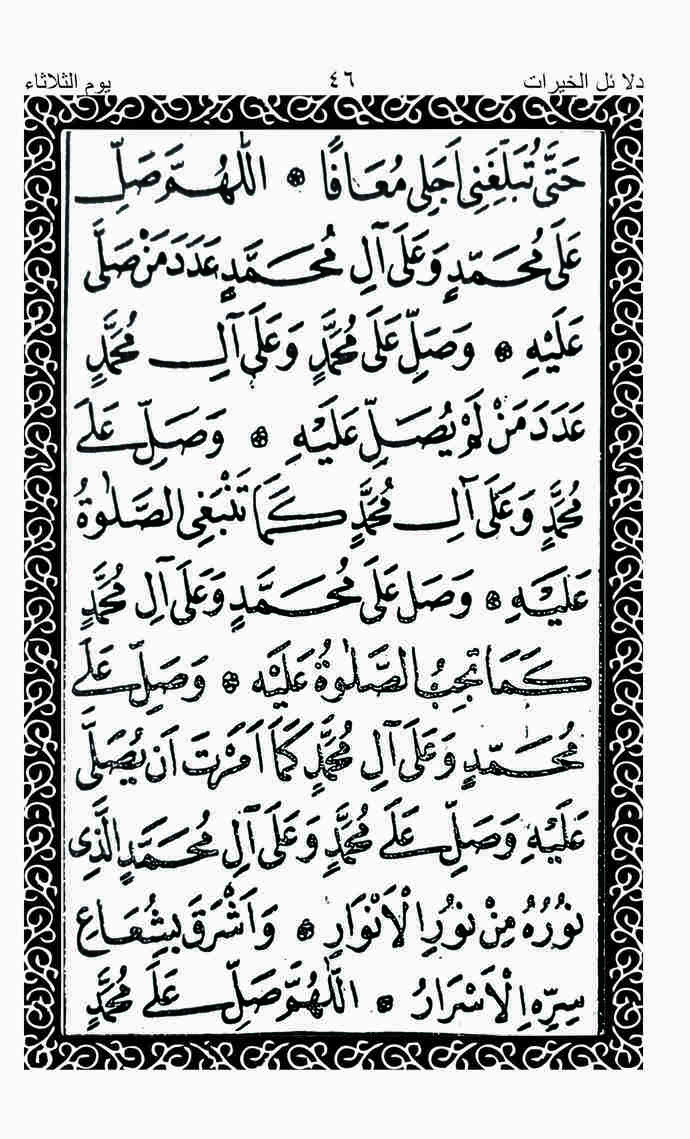 دلا ئل الخيرات ٤٦ يوم الثلاثاء
حَتّٰى تُبَلِّغَنِى اَجَلِى مُعَافًا ۞ اَللّٰهُمَّ صَلِّ
عَلَى مُحَمَّدٍ وَعَلَى آلِ مُحَمَّدٍ عَدَدَ مَنْ صَلَّى
عَلَيْهِ ۞ وَصَلِّ عَلَى مُحَمَّدٍ وَعَلَى آلِ مُحَمَّدٍ
عَدَدَ مَنْ لَمْ يُصَلِّ عَلَيْهِ ۞ وَصَلِّ عَلَى
مُحَمَّدٍ وَعَلَى آلِ مُحَمَّدٍ كَمَا تَنْبَغِى الصَّلٰوةُ
عَلَيْهِ ۞ وَصَلِّ عَلَى مُحَمَّدٍ وَعَلَى آلِ مُحَمَّدٍ
كَمَا تَجِبُ الصَّلٰوةُ عَلَيْهِ ۞ وَصَلِّ عَلَى
مُحَمَّدٍ وَعَلَى آلِ مُحَمَّدٍ كَمَا اَمَرْتَ اَنْ يُصَلَّى
عَلَيْهِ وَصَلِّ عَلَى مُحَمَّدٍ وَعَلَى آلِ مُحَمَّدٍ الَّذِى
نُورُهُ مِنْ نُورِ الْاَنْوَارِ ۞ وَاَشْرَقَ بِشُعَاعِ
سِرِّهِ الْاَسْرَارُ ۞ اَللّٰهُمَّ صَلِّ عَلَى مُحَمَّدٍ